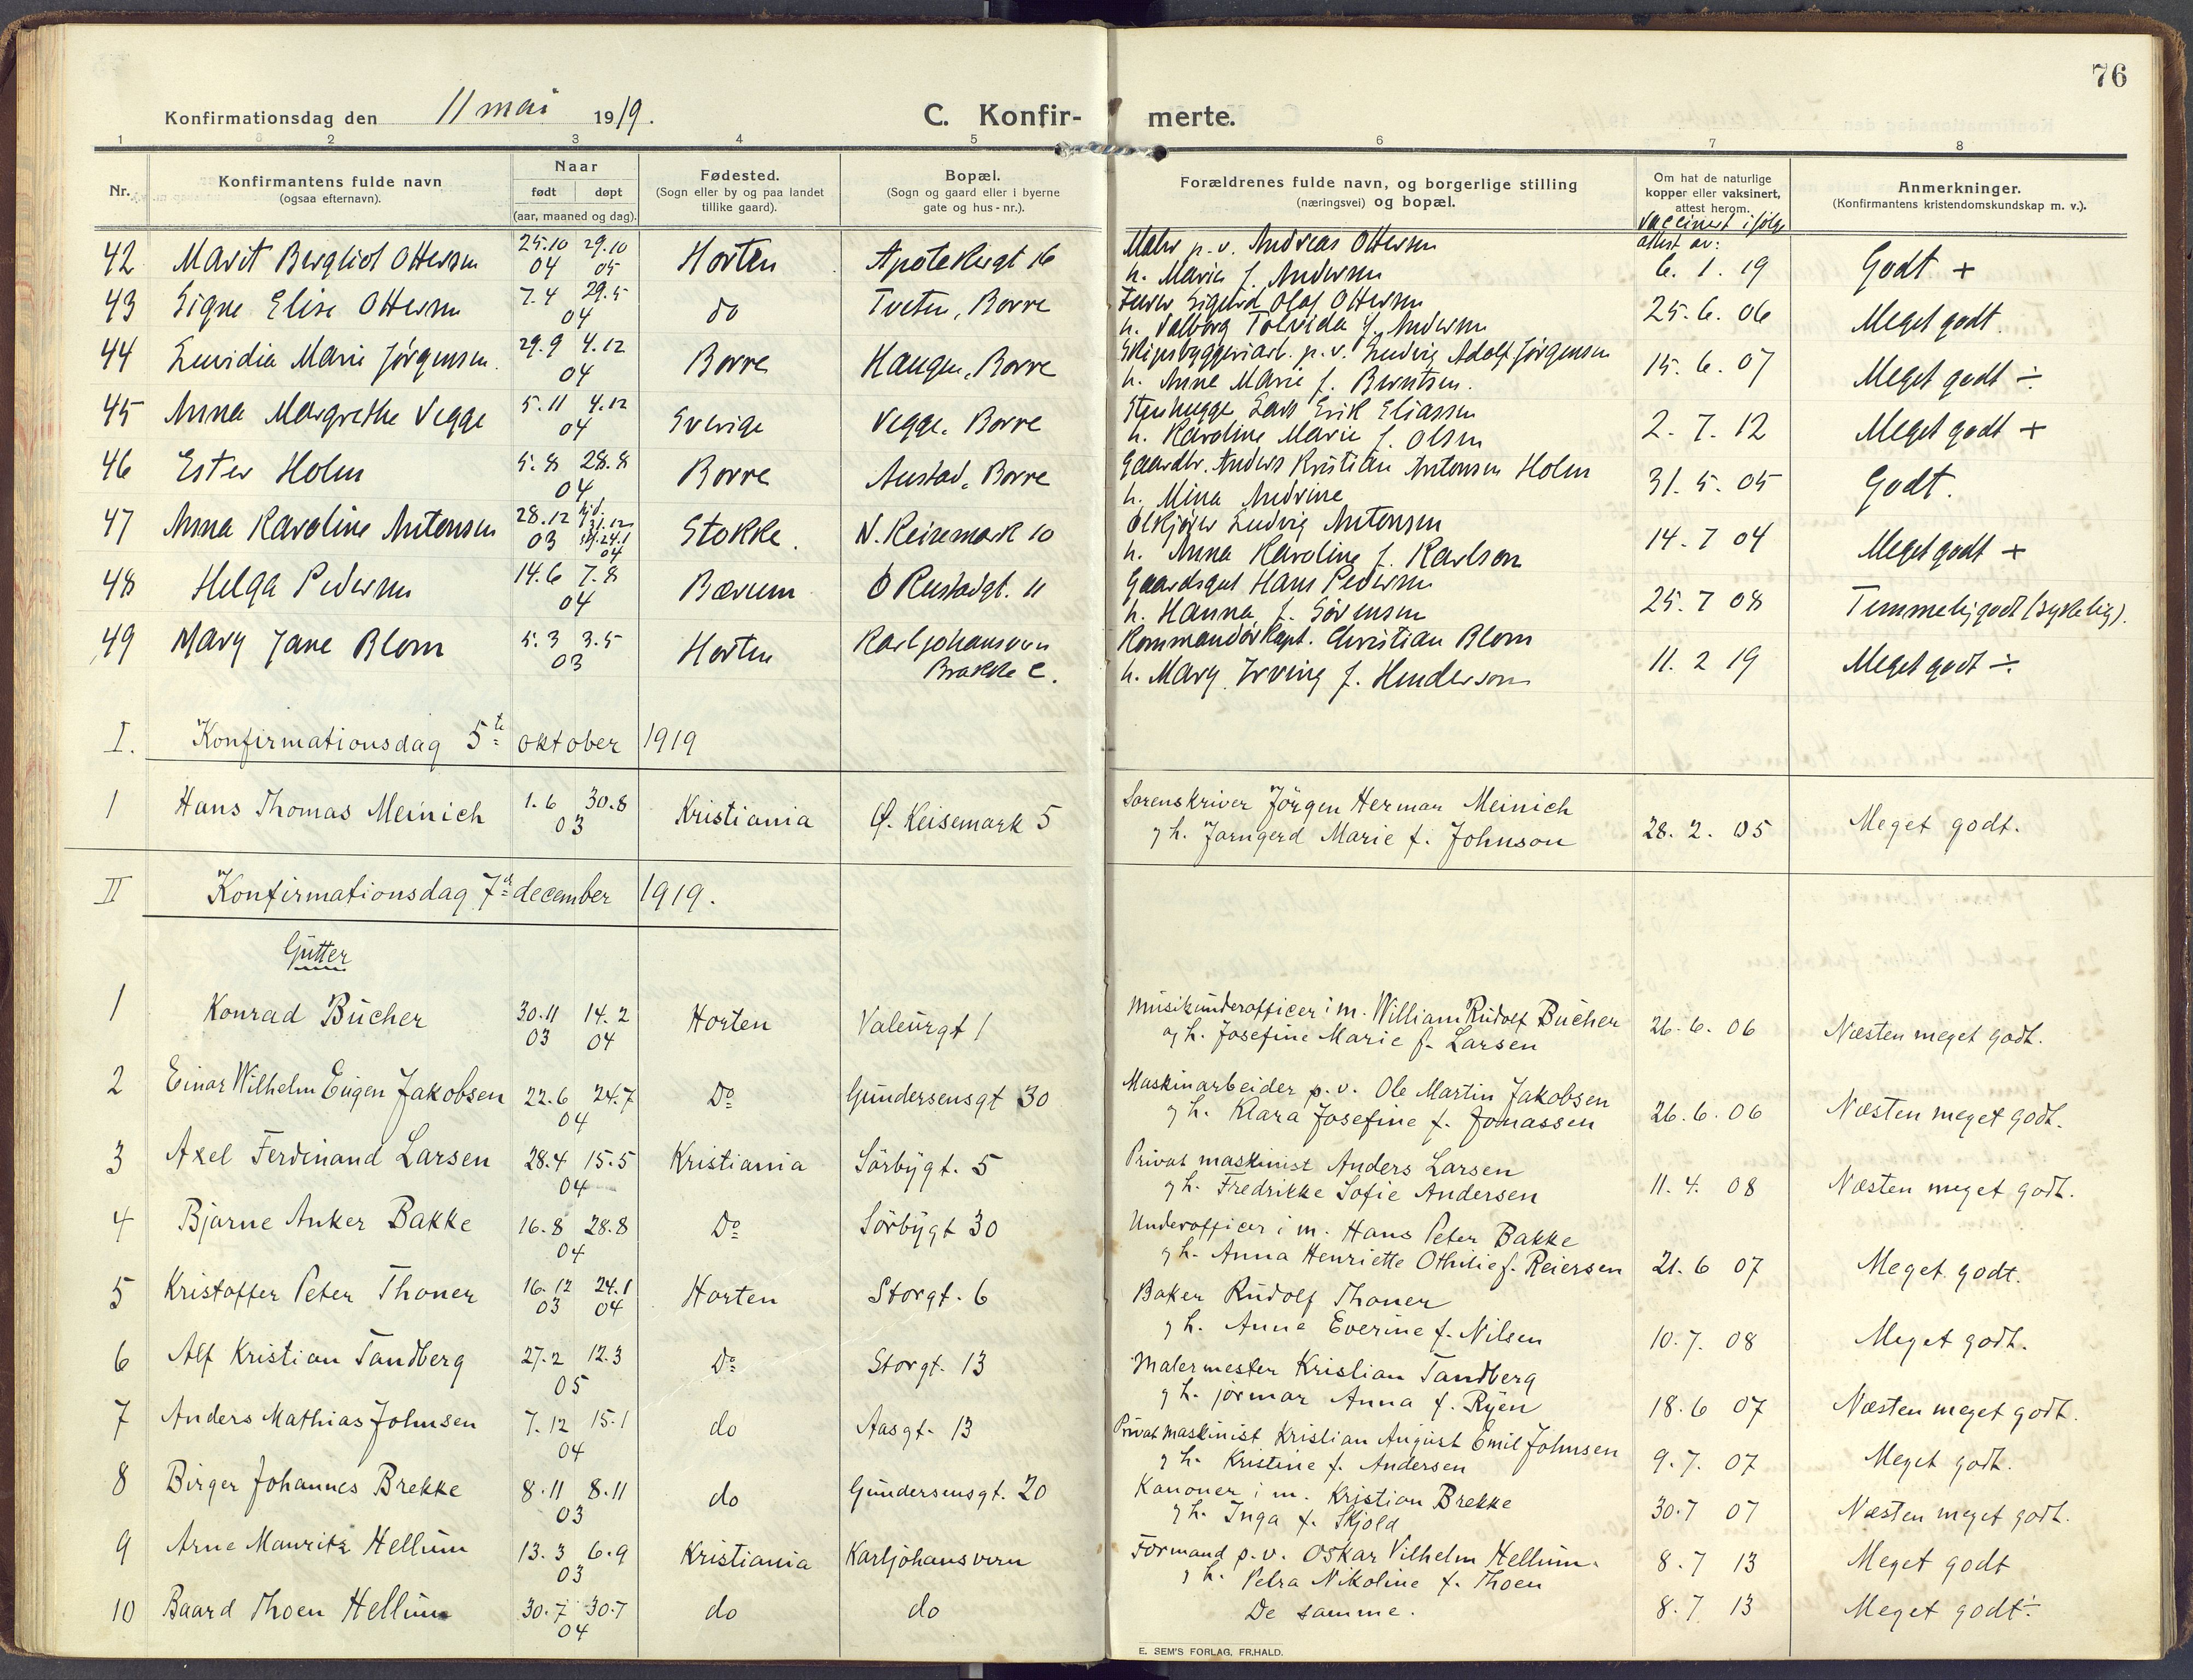 76
Konfirmationsdag den 11 mai 1919.
C. Konfir- merte.
1 2 3 4 5 6 7 8
Nr.
Konfirmantens fulde navn
(ogsaa efternavn).
Naar
født døpt
(aar, maaned og dag).
Fødested.
(Sogn eller by og paa landet
tillike gaard).
Bopæl.
(Sogn og gaard eller i byerne
gate og hus-nr.).
Forældrenes fulde navn, og borgerlige stilling
(næringsvei) og bopæl.
Om hat de naturlige
kopper eller vaksinert,
attest herom.
Anmerkninger.
(Konfirmantens kristendomskundskap m. v.).
Vaccinert ifølge
attest av:
42 Marit Bergliot Ottersen 25.10 04 29.10 05 Horten Apotekergt 16 Maler p.v. Andreas Ottersen
h. Marie f. Andersen 6. 1. 19 Godt +
43 Signe Elise Ottersen 7.4 29.5 04 do Tveten, Borre Sigurd Olaf Ottersen
h. Valborg Tolvida f. Andersen 25. 6. 06 Meget godt.
44 Luvidia Marie Jørgensen. 29.9 4.12 04 Borre Haugen, Borre Skipsbyggeriarb. p.v. Ludvig Adolf Jørgensen
h. Anna Marie f. Berntsen. 15. 6. 07 Meget godt ÷
45 Anna Margrethe Vegge 5.11 4.12 04 Sverige Vegge, Borre Stenhugge Lars Erik Eliassen
h. Karoline Marie f. Olsen 2. 7. 12 Meget godt +
46 Ester Holm 5.8 28.8 04 Borre Austad, Borre Gaardbr. Anders Kristian Antonsen Holm
h. Mina Andrine 31. 5. 05 Godt.
47 Anna Karoline Antonsen 28.12 03 31.12 24.1 04 Stokke. N. Keisemark 10 Ølkjører Ludvig Antonsen
h. Anna Karoline f. Karlson 14. 7 04 Meget godt +
48 Helga Pedersen 14.6 7.8 04 Bærum O Rustadgt. 11 Gaardsgut Hans Pedersen
h. Hanna f. Sørensen 25. 7 08 Temmelig godt (sykelig).
49 Mary Jane Blom 5.3 3.5 03 Horten Karljohansvern
Brakke C. Kommandørkapt. Christian Blom
h. Mary Irving f. Henderson 11. 2 19 Meget godt ÷
I. Konfirmationsdag 5te oktober 1919
1 Hans Thomas Meinich 1.6 30.8 03 Kristiania Ø. Keisemark 5 Sorenskriver Jörgen Herman Meinich
og h. Jarngerd Marie f. Johnson 28. 2. 05 Meget godt.
II Konfirmationsdag 7de december 1919.
Gutter
1 Konrad Bücher 30.11 03 14.2 04 Horten Valeurgt 1 Musikunderofficer i m. William Rudolf Bücher
og h. Josefine Marie f. Larsen 26. 6. 06 Næsten meget godt.
2 Einar Wilhelm Eugen Jakobsen 22.6 24.7 04 Do Gundersensgt 30 Maskinarbeider p.v. Ole Martin Jakobsen
og h. Klara Josefine f. Jonassen 26. 6. 06 Næsten meget godt.
3 Axel Ferdinand Larsen 28.4 15.5 04 Kristiania Sörbygt. 5 Privat maskinist Anders Larsen
og h. Fredrikke Sofie Andersen 11. 4. 08 Næsten meget godt.
4 Bjarne Anker Bakke 16.8 28.8 04 Do Sörbygt 30 Underofficer i m. Hans Peter Bakke
og h. Anna Henriette Othilie f. Reiersen 21. 6 07 Meget godt.
5 Kristoffer Peter Thoner 16.12 03 24.1 04 Horten Storgt. 6 Baker Rudolf Thoner
og h. Anna Everine f. Nilsen 10. 7. 08 Meget godt.
6 Alf Kristian Tandberg 27.2 12.3 05 Do Storgt. 13 Malermester Kristian Tandberg
og h. jörmar Anna f. Ryen 18. 6 07 Næsten meget godt.
7 Anders Mathias Johnsen 7.12 15.1 04 do Aasgt. 13 Privat maskinist Kristian August Emil Johnsen
og h. Kristine f. Andersen 9. 7. 07 Meget godt.
8 Birger Johannes Brekke 8.11 8.11 03 do Gundersensgt. 20 Kanoner i m. Kristian Brekke
og h. Inga f. Skjold 30. 7 07 Næsten meget godt.
9 Arne Mauritz Hellum 13.3 6.9 03 Kristiania Karljohansvern Formand p.v. Oskar Vilhelm Hellum.
og h. Petra Nikoline f. Thoen 8. 7 13 Meget godt
10 Baard Thoen Hellum 30.7 30.7 04 do do De samme. 8. 7. 13 Meget godt ÷
E. SEM'S FORLAG, FR.HALD.